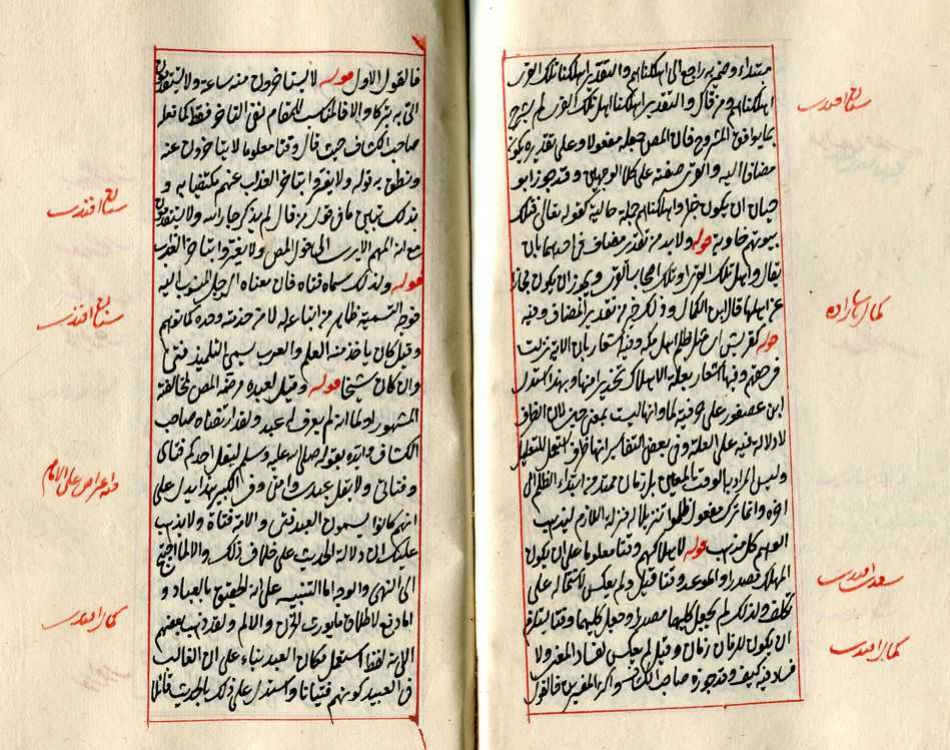 مبتداء وضميره راجع الى اهلكناهم والتقدير اهلكنا تلك القرى
اهلكناهم ومن قال والتقدير اهلكنا اهل تلك القرى لم يشرح
بما يوافق المشروح فان المص جعله مفعولا وعلى تقديره يكون
مضافا اليه والقرى صفته على كلا الوجهين وقد جوز ابو
حيان ان يكون خبرا واهلكناهم جملة حالية كقوله تعالى فتلك
بيوتهم خاوية قوله ولابد من تقدير مضاف في احدهما بان
يقال واهل تلك القرى او تلك اصحاب القرى ويجوز ان يكون مجازا
عن اهلها قال ابن الكمال وذلك من تقدير المضاف وفيه
قوله كقريش اى مثل ظلم اهل مكه وفيه اشعار بان الاية نزلت
في حقهم وفيها اشعار بعلية الاهلاك تحذير امنها وبهذا استدل
ابن عصفور على حرفية لما وانها ليست بمعنى حين لان الظرف
لا دلالة فيه على العلة وفي بعض التفاسير انها ظرف استعمل للتعليل
وليس المراد بالوقت المعين بل زمان ممتد من ابتداء الظلم الى
اخره وانما ترك مفعول ظلموا تنزيلا له منزلة اللازم ليذهب
الوهم كل مذهب قوله لاهلاكهم وقتا معلوما على ان يكون
المهلك مصدرا والموعد وقتا قيل ولم يعكس لاشتماله على
تكلف ولذلك لم يجعل كليهما مصدرا وجعل كليهما وقتا يستلزم
ان يكون للزمان زمان وقيل لم يعكس لفساد المعنى ولا
فساد فيه كيف وقد جوزه صاحب الكشاف واكثر المفسرين فالقول
سنان افندى
كمال پاشا زاده
سعدى افندى
كمال افندى
فالقول الاول قوله لا يستاخرون منه ساعة ولا يستقدمون
الى به والا فالمناسب للمقام نفى التاخر فقط كما فعله
صاحب الكشاف حيث قال وقتا معلوما لا يتاخرون عنه
قوله ولا يغتروا بتاخر العذاب عنهم مكتفيا به و
بذلك تبين ما في قول من قال لم يذكر جار الله ولا يستقدمون
مع انه المهم الا يرى الى قول المص ولا يغتروا بتاخر العذاب
قوله ولذلك سماه فتاه فان معناه الرجل المنسوب اليه
فوجه التسمية ظاهر من اتباعه له لا من خدمته وحده كما توهم
وقيل كان ياخذ منه العلم والعرب يسمى التلميذ فتى
وان كان شيخا قوله وقيل لعبده مرضه المص لمخالفته
المشهور او لما انه لم يعرف له عبد ولقد ارتضاه صاحب
الكشاف وايده بقوله صلى الله عليه وسلم ليقل احدكم فتاى
وفتاتى ولا يقل عبدى وامتى وفي الكبير هذا يدل على
انهم كانوا يسمون العبد فتى والامة فتاة ولا يذهب
عليك ان دلالة الحديث على خلاف ذلك والا لما احتيج
الى النهى والورد اما التنبيه على انه الحقيق بالعباد و
اما دفع لاطلاق ما يورث الحزن والالم ولقد ذهب بعضهم
الى انه لفظ استعمل مكان العبد بناء على ان الغالب
في العبيد كونهم فتيانا واستدل على ذلك بالحديث قائلا
سنان افندى
سنان افندى
فيه اعراض على الامام
كمال افندى